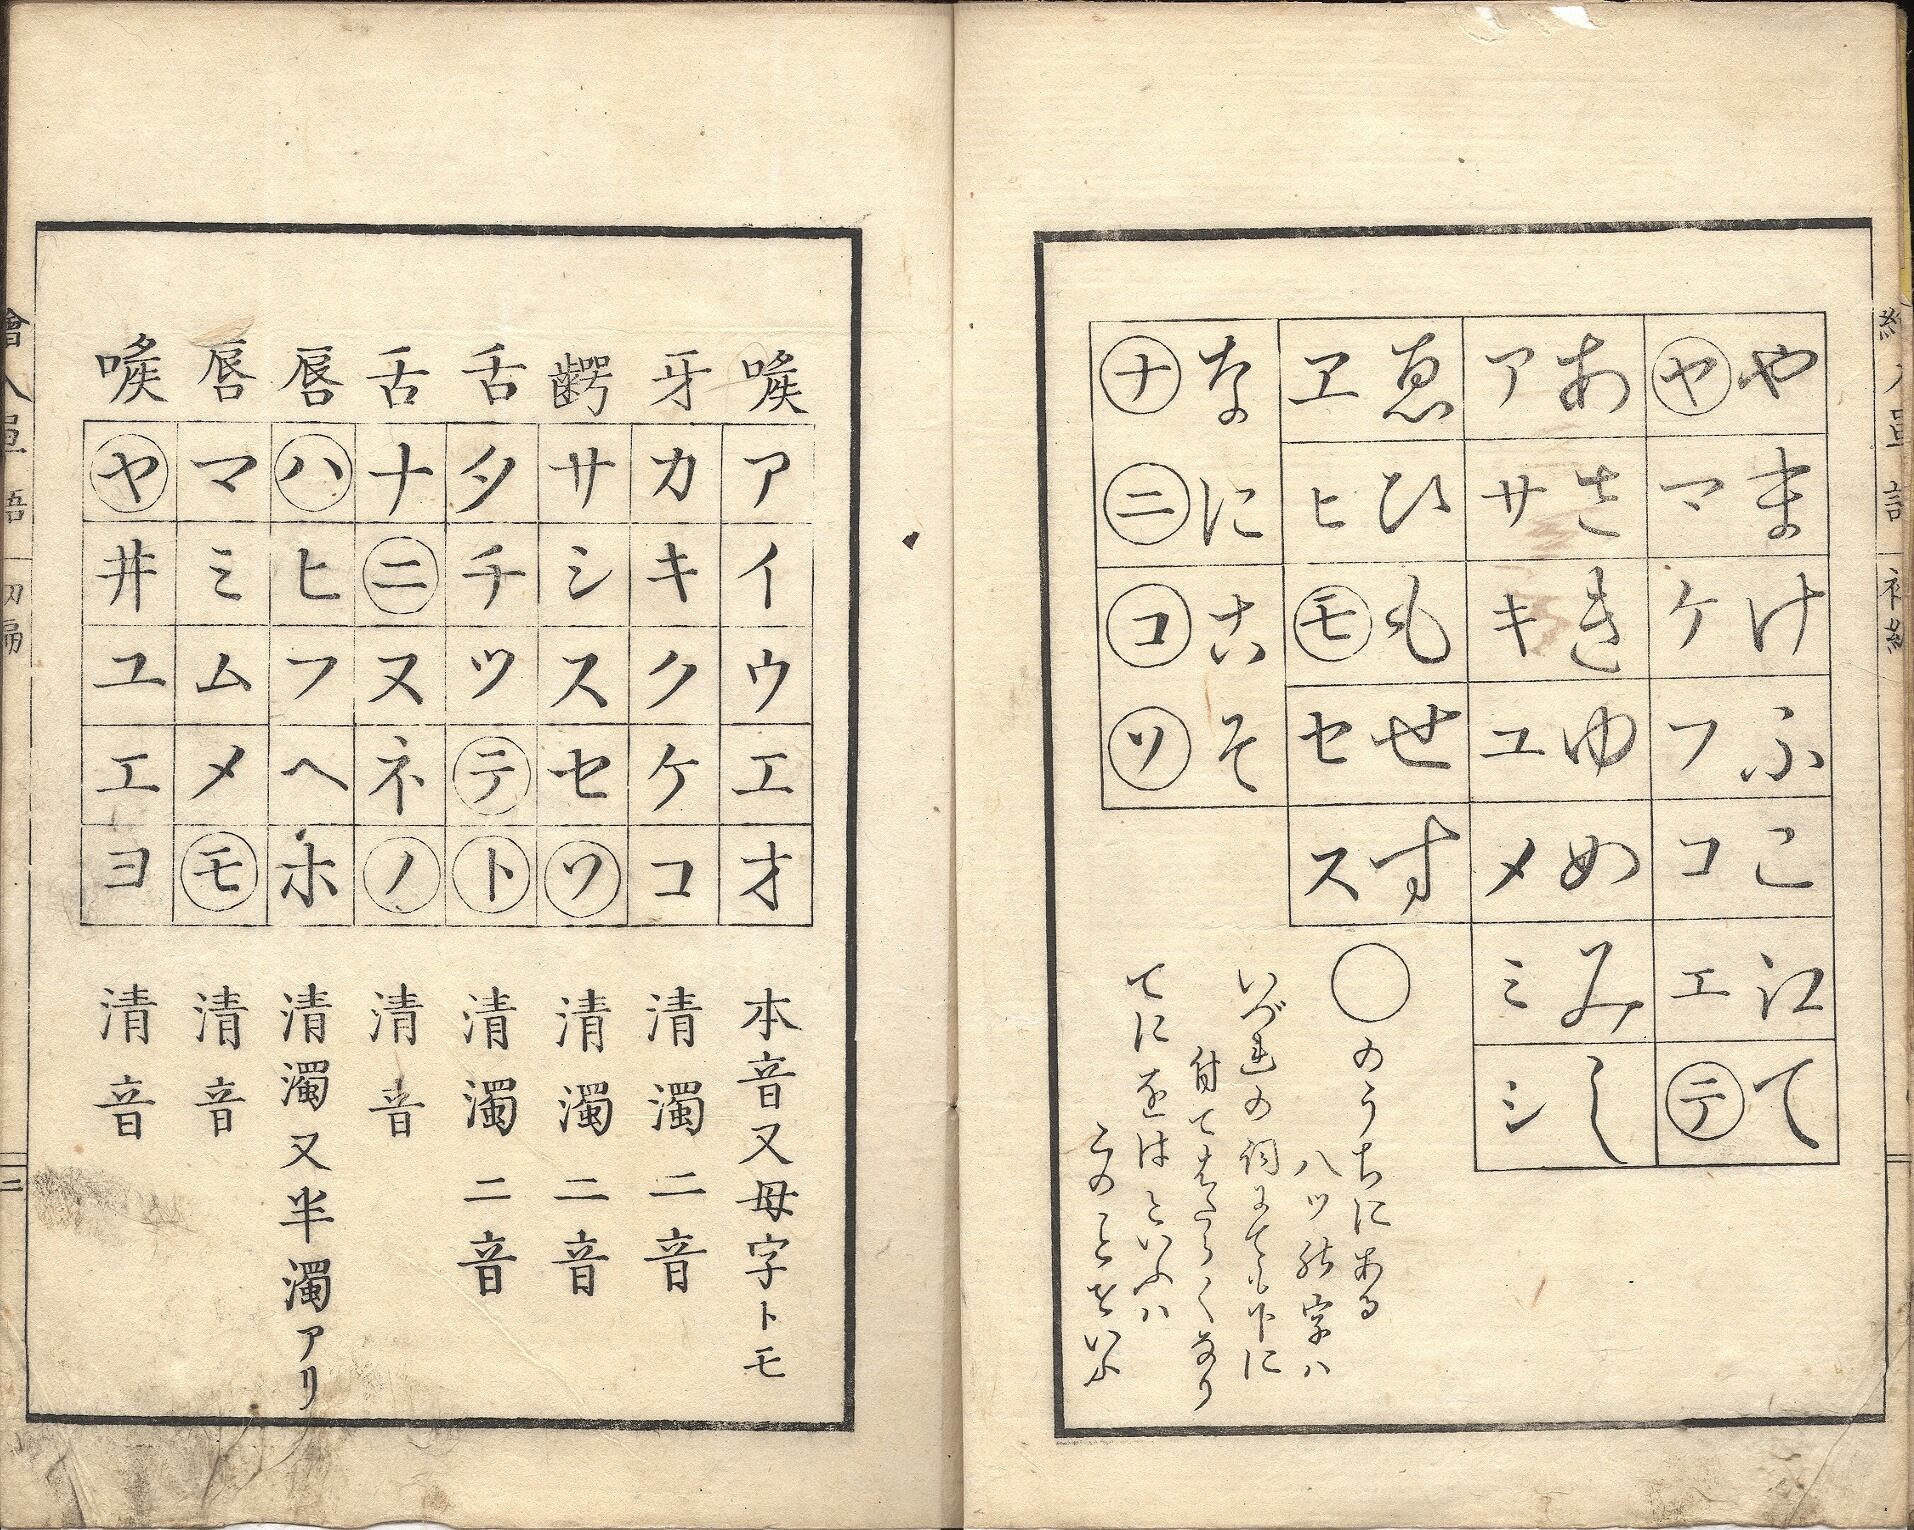 や ま け ふ こ 江 て
ヤ マ ケ フ コ エ テ
あ さ き ゆ め み し
ア サ キ ユ メ ミ シ
ゑ ひ も せ す
ヱ ヒ モ セ ス
な に こ そ
ナ ニ コ ソ
〇のうちにある
八ツの字ハ
いづれの詞にても下に
付てはたらくなり
てにをはといふハ
このことをいふ
喉 ア イ ウ エ オ 本音又母字トモ
牙 カ キ ク ケ コ 清濁二音
齶 サ シ ス セ ソ 清濁二音
舌 タ チ ツ テ ト 清濁二音
舌 ナ ニ ヌ ネ ノ 清音
唇 ハ ヒ フ ヘ ホ 清濁又半濁アリ
唇 マ ミ ム メ モ 清音
喉 ヤ 井 ユ エ ヨ 清音